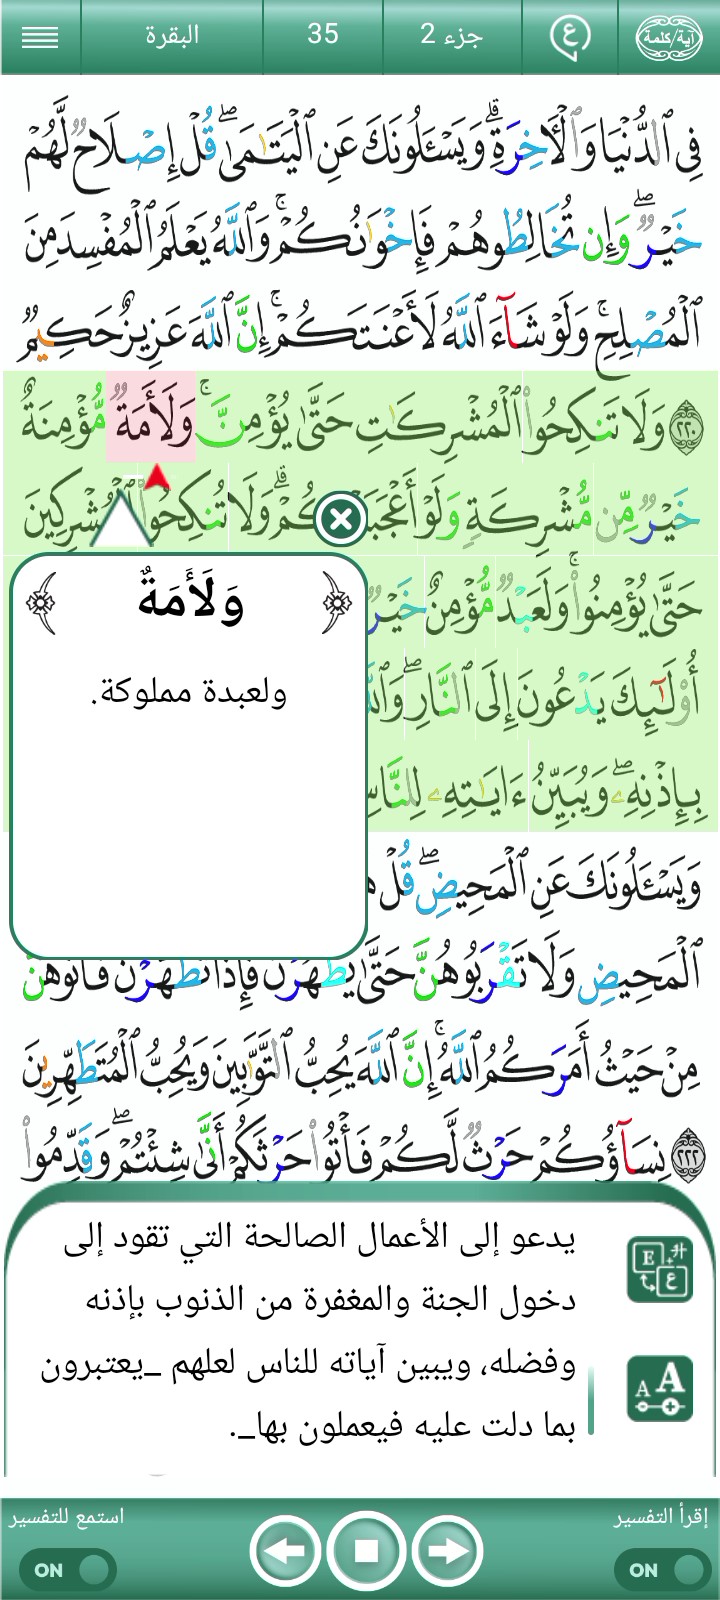 آية/كلمة
ع
جزء 2
35
البقرة
فِي ٱلدُّنْيَا وَٱلْأَخِرَةِ ۗ وَيَسْـَٔلُونَكَ عَنِ ٱلْيَتَـٰمَىٰ ۖ قُلْ إِصْلَاحٌ لَّهُمْ
خَيْرٌ ۖ وَإِن تُخَالِطُوهُمْ فَإِخْوَٰنُكُمْ ۚ وَٱللَّهُ يَعْلَمُ ٱلْمُفْسِدَ مِنَ
ٱلْمُصْلِحِ ۚ وَلَوْ شَآءَ ٱللَّهُ لَأَعْنَتَكُمْ ۚ إِنَّ ٱللَّهَ عَزِيزٌ حَكِيمٌ
٢٢٠ وَلَا تَنكِحُوا۟ ٱلْمُشْرِكَـٰتِ حَتَّىٰ يُؤْمِنَّ ۚ وَلَأَمَةٌ مُّؤْمِنَةٌ
خَيْرٌ مِّن مُّشْرِكَةٍ وَلَوْ أَعْجَبَ كُمْ ۗ وَلَا تُنكِحُوا۟ ٱلْمُشْرِكِينَ
حَتَّىٰ يُؤْمِنُوا۟ ۚ وَلَعَبْدٌ مُّؤْمِنٌ خَيْرٌ
أُو۟لَـٰٓئِكَ يَدْعُونَ إِلَى ٱلنَّارِ ۖ
بِإِذْنِهِۦ ۖ وَيُبَيِّنُ ءَايَـٰتِهِۦ
وَيَسْـَٔلُونَكَ عَنِ ٱلْمَحِيضِ ۖ قُلْ
ٱلْمَحِيضِ وَلَا تَقْرَبُوهُنَّ حَتَّىٰ يَطْهُرْنَ فَإِذَا تَطَهَّرْنَ فَأْتُوهُنَّ
مِنْ حَيْثُ أَمَرَكُمُ ٱللَّهُ ۚ إِنَّ ٱللَّهَ يُحِبُّ ٱلتَّوَّٰبِينَ وَيُحِبُّ ٱلْمُتَطَهِّرِينَ
٢٢٢ نِسَآؤُكُمْ حَرْثٌ لَّكُمْ فَأْتُوا۟ حَرْثَكُمْ أَنَّىٰ شِئْتُمْ ۖ وَقَدِّمُوا۟
وَلَأَمَةٌ
ولعبدة مملوكة.
يدعو إلى الأعمال الصالحة التي تقود إلى
دخول الجنة والمغفرة من الذنوب بإذنه
وفضله، ويبين آياته للناس لعلهم _يعتبرون
بما دلت عليه فيعملون بها_.
إقرأ التفسير
استمع للتفسير
ON
ON